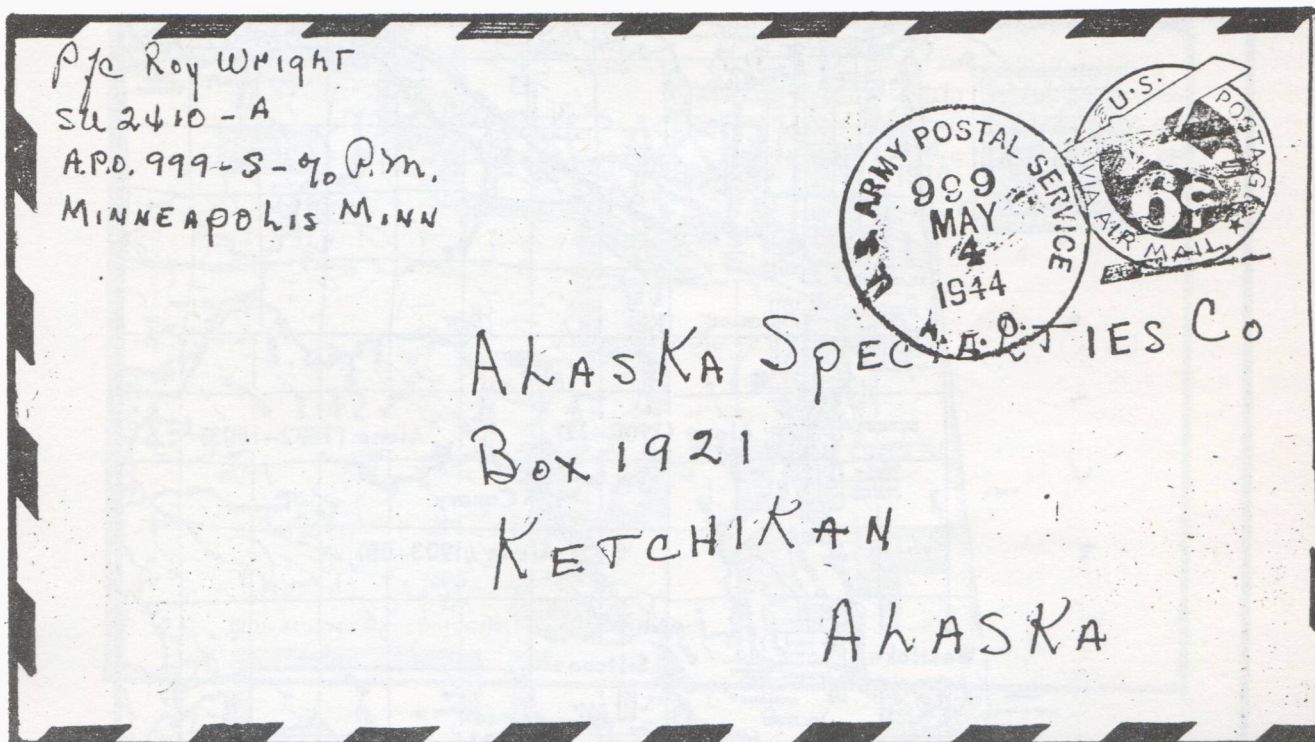 Pfc Roy Wright
SU 2410 - A
A.P.O. 999 - S - c/o P.M.
MINNEAPOLIS MINN
U.S. ARMY POSTAL SERVICE
999
MAY
4
1944
A.P.O.
U.S. POSTAGE
6¢
VIA AIR MAIL
ALASKA SPECIALTIES CO
BOX 1921
KETCHIKAN
ALASKA